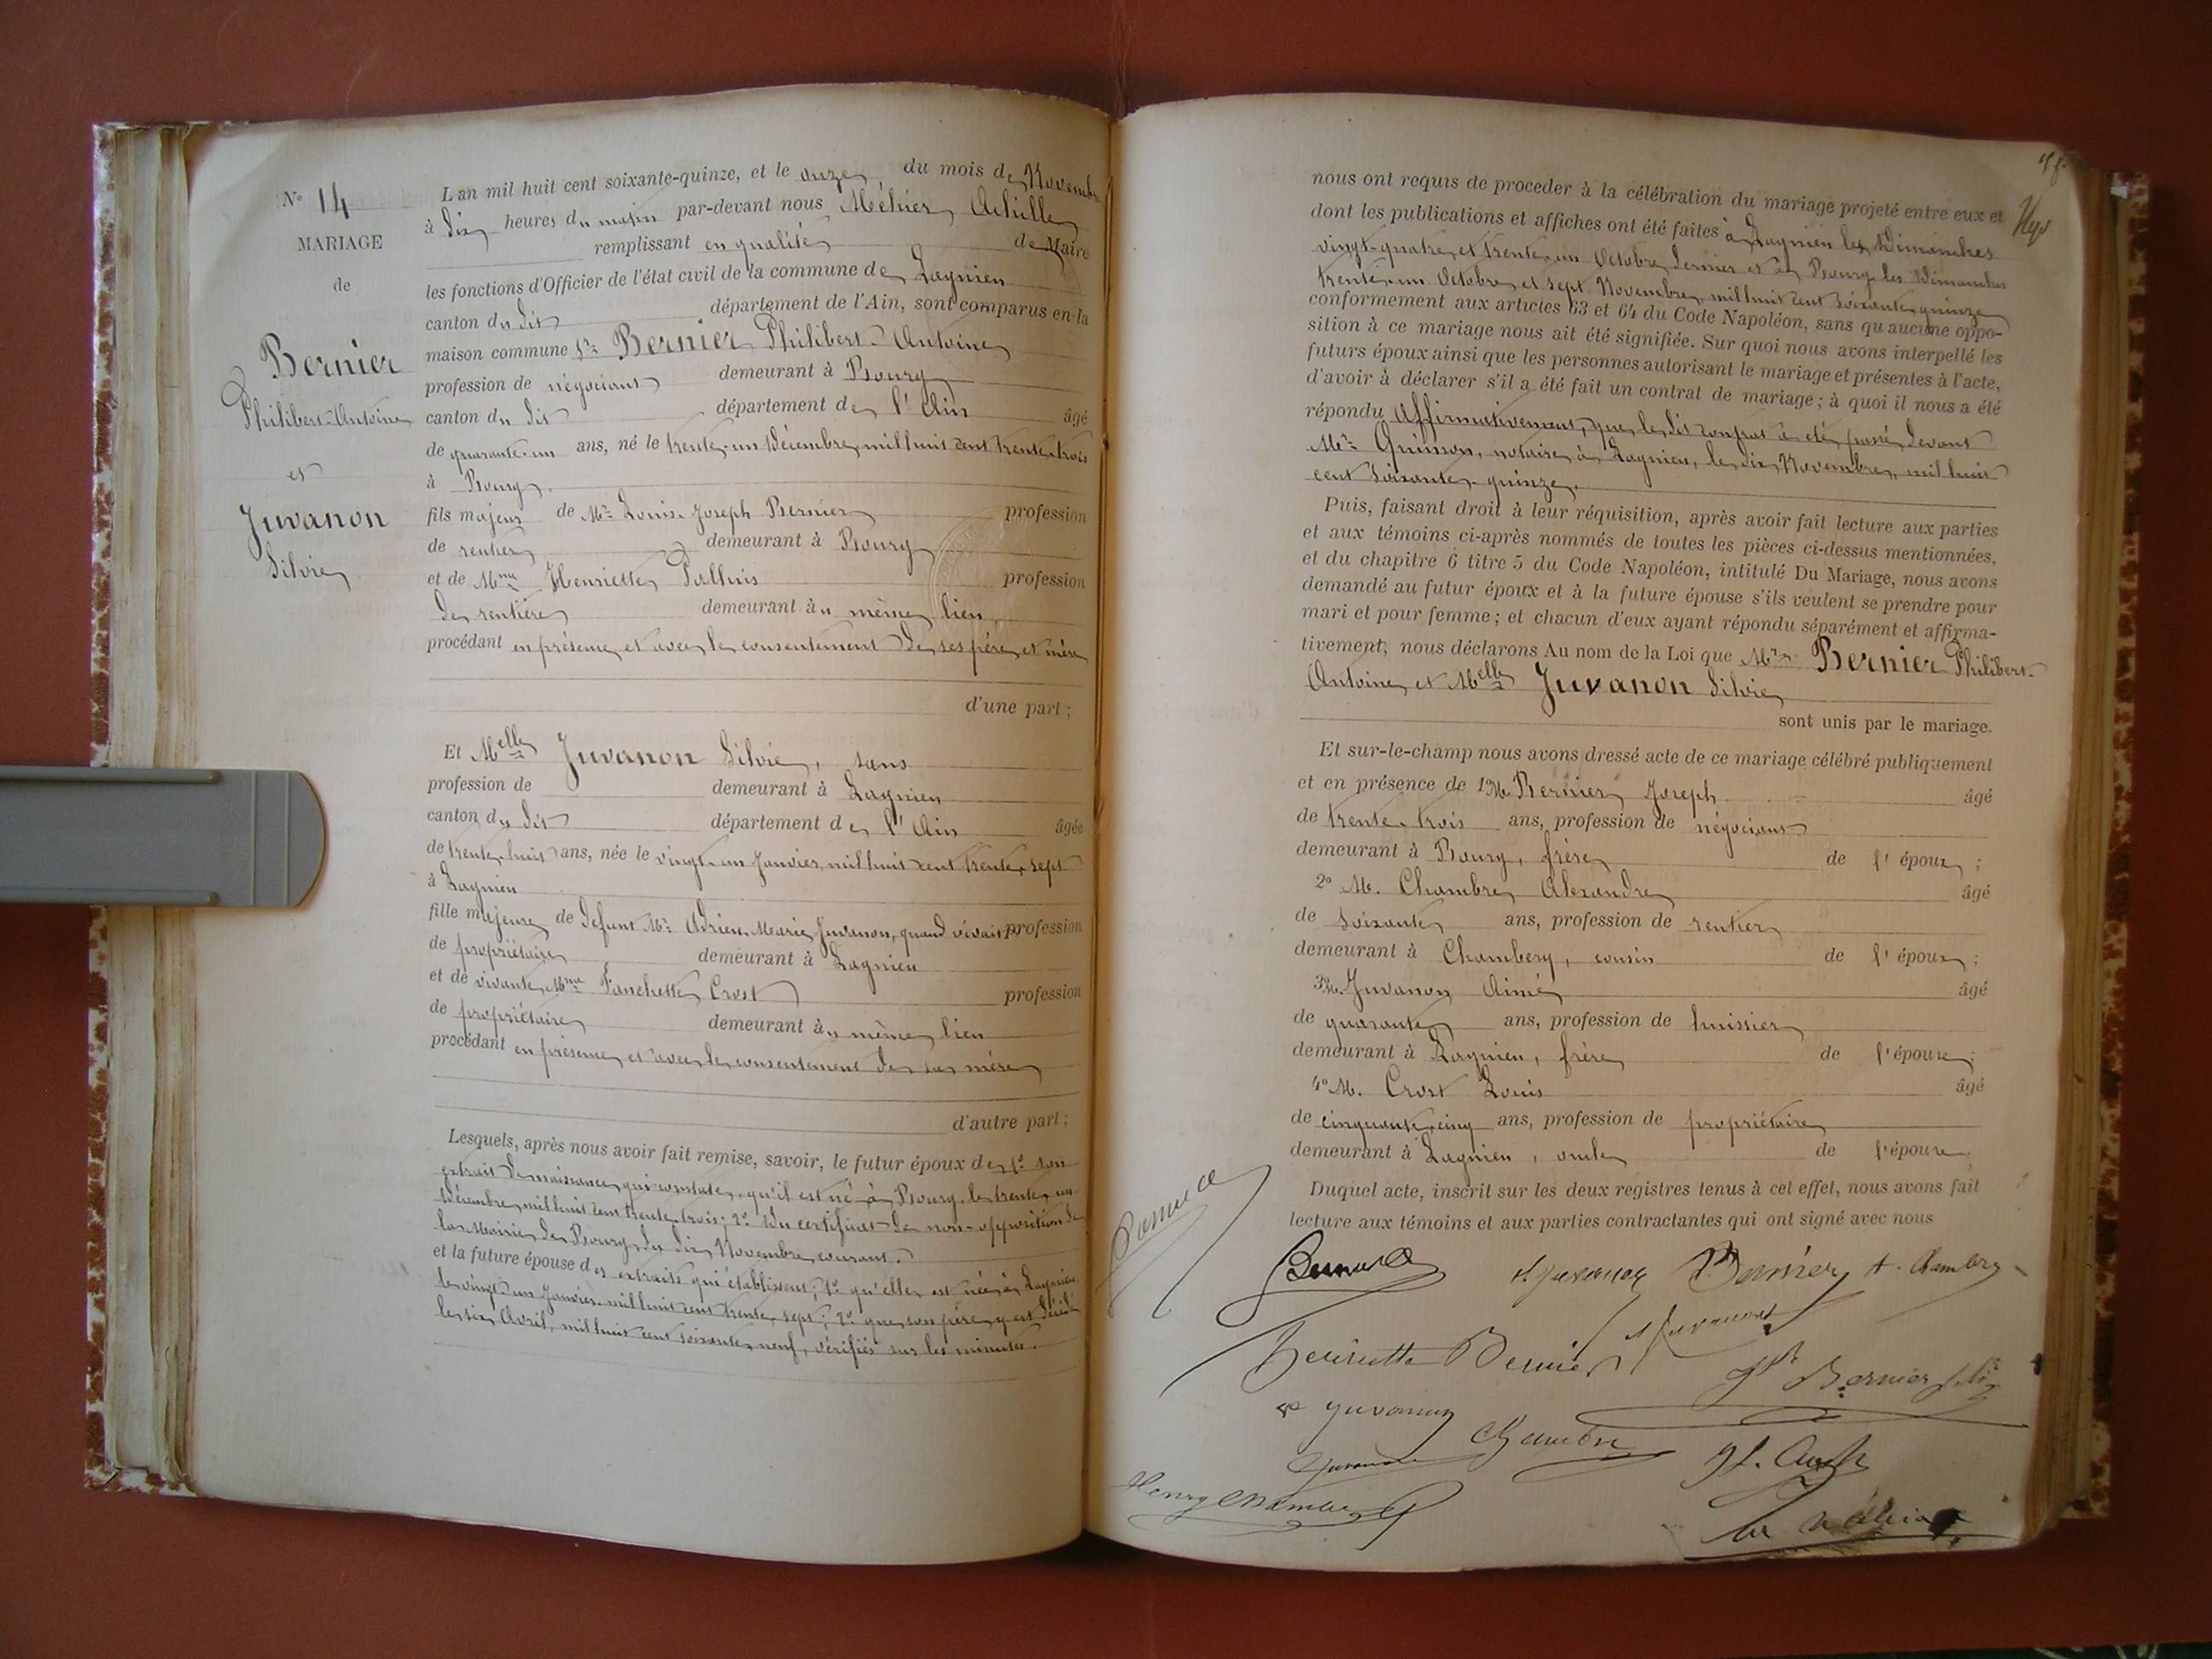 N° 14
MARIAGE
de
Bernier
Philibert-Antoine
et
Juvanon
Silvie
L'an mil huit cent soixante-quinze, et le onze du mois de Novembre
à dix heures du matin par-devant nous Méhier, Achille
remplissant en qualité de Maire
les fonctions d'Officier de l'état civil de la commune de Lagnieu
canton du dit département de l'Ain, sont comparus en la
maison commune 1° Bernier Philibert-Antoine
profession de négociant demeurant à Bourg
canton du dit département de l'Ain âgé
de quarante-un ans, né le trente-un Décembre, mil huit cent trente-trois
à Bourg.
fils majeur de Mr Louis-Joseph Bernier profession
de rentier demeurant à Bourg
et de Mme Henriette Palluis profession
de rentière demeurant au même lieu,
procédant en présence et avec le consentement de ses père et mère
d'une part ;
Et Melle Juvanon Silvie, sans
profession de demeurant à Lagnieu
canton du dit département de l'Ain âgée
de trente-huit ans, née le vingt-un Janvier, mil huit cent trente-sept
à Lagnieu
fille majeure de défunt Mr Adrien-Marie Juvanon, quand vivait profession
de propriétaire demeurant à Lagnieu
et de vivante Mme Fanchette Crost profession
de propriétaire demeurant au même lieu
procédant en présence et avec le consentement de sa mère
d'autre part ;
Lesquels, après nous avoir fait remise, savoir, le futur époux de 1° son
extrait de naissance qui constate, qu'il est né à Bourg, le trente-un
Décembre, mil huit cent trente-trois ; 2° Du certificat de non-opposition de
la Mairie de Bourg du dix Novembre courant.
et la future épouse des extraits qui établissent, 1° qu'elle est née à Lagnieu
le vingt-un Janvier, mil huit cent trente-sept ; 2° que son père y est décédé
le six Avril, mil huit cent soixante-neuf, vérifiés sur les minutes.
nous ont requis de procéder à la célébration du mariage projeté entre eux et
dont les publications et affiches ont été faites à Lagnieu les Dimanches
vingt-quatre et trente-un Octobre dernier et à Bourg les Dimanches
trente-un Octobre et sept Novembre, mil huit cent soixante-quinze
conformément aux articles 63 et 64 du Code Napoléon, sans qu'aucune oppo-
sition à ce mariage nous ait été signifiée. Sur quoi nous avons interpellé les
futurs époux ainsi que les personnes autorisant le mariage et présentes à l'acte,
d'avoir à déclarer s'il a été fait un contrat de mariage ; à quoi il nous a été
répondu Affirmativement, que le dit contrat a été passé devant
Me Quinson, notaire à Lagnieu, le dix Novembre, mil huit
cent soixante-quinze.
Puis, faisant droit à leur réquisition, après avoir fait lecture aux parties
et aux témoins ci-après nommés de toutes les pièces ci-dessus mentionnées,
et du chapitre 6 titre 5 du Code Napoléon, intitulé Du Mariage, nous avons
demandé au futur époux et à la future épouse s'ils veulent se prendre pour
mari et pour femme ; et chacun d'eux ayant répondu séparément et affirma-
tivement, nous déclarons Au nom de la Loi que Mr Bernier Philibert-
Antoine et Melle Juvanon Silvie
sont unis par le mariage.
Et sur-le-champ nous avons dressé acte de ce mariage célébré publiquement
et en présence de 1° M. Bernier Joseph âgé
de trente-trois ans, profession de négociant
demeurant à Bourg, frère de l'époux ;
2° M. Chambre Alexandre âgé
de soixante ans, profession de rentier
demeurant à Chambery, cousin de l'époux ;
3° M. Juvanon Aimé âgé
de quarante ans, profession de huissier
demeurant à Lagnieu, frère de l'épouse ;
4° M. Crost Louis âgé
de cinquante-cinq ans, profession de propriétaire
demeurant à Lagnieu, oncle de l'épouse.
Duquel acte, inscrit sur les deux registres tenus à cet effet, nous avons fait
lecture aux témoins et aux parties contractantes qui ont signé avec nous
S. Juvanon Bernier A. Chambre
Henriette Bernier A Juvanon
Bernier fils
Juvanon
Chambre
Juvanon
Henry Chambre